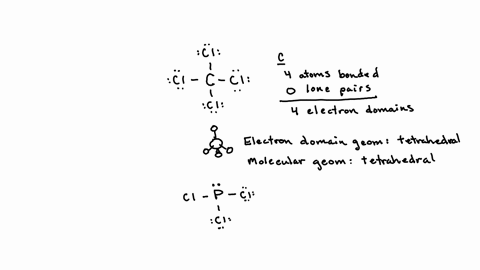 :Cl:
:Cl - C - Cl:
:Cl:
C
4 atoms bonded
0 lone pairs
4 electron domains
Electron domain geom: tetrahedral
Molecular geom: tetrahedral
Cl - P - Cl:
:Cl: